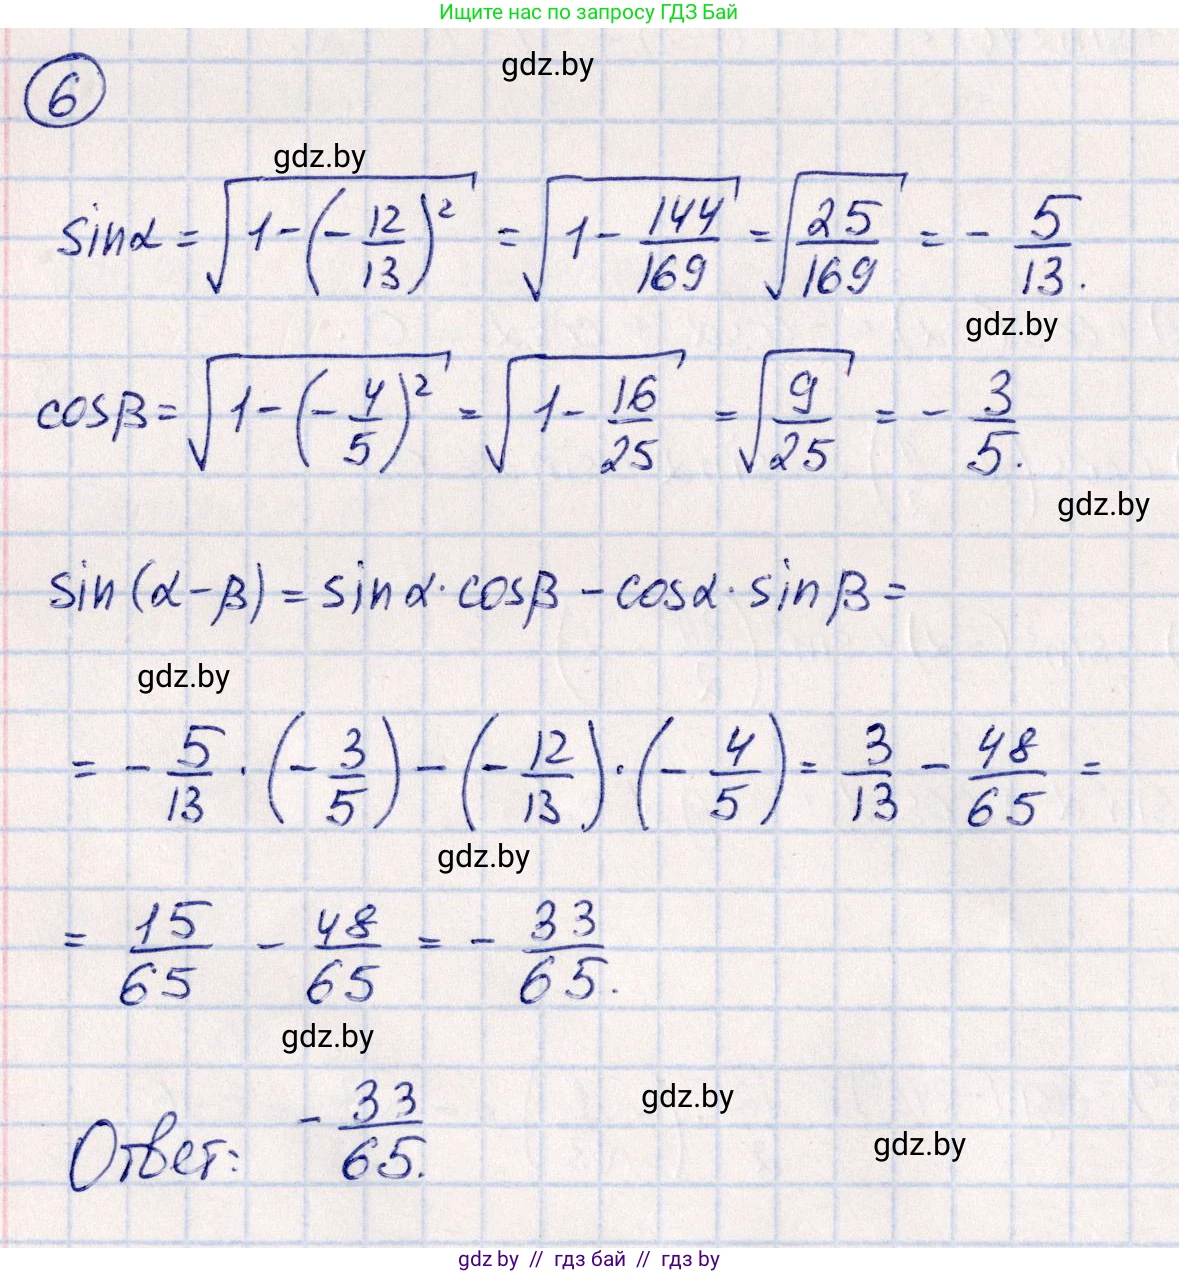 Ищите нас по запросу ГДЗ Бай
gdz.by
6
gdz.by
sinα = √(1-(-12/13)²) = √(1-144/169) = √(25/169) = -5/13.
gdz.by
cosβ = √(1-(-4/5)²) = √(1-16/25) = √(9/25) = -3/5.
gdz.by
sin(α-β) = sinα·cosβ - cosα·sinβ =
gdz.by
= -5/13·(-3/5)-(-12/13)·(-4/5) = 3/13 - 48/65 =
gdz.by
= 15/65 - 48/65 = -33/65.
gdz.by
gdz.by
Ответ: -33/65.
gdz.by
gdz.by // гдз бай // гдз by